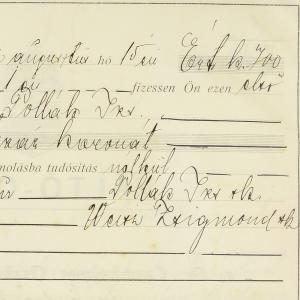 augusztus hó 15én Ért k. 700
fizessen Ön ezen első
Pollák Izr.,
koronát
molásba tudósítás nélkül
Pollák Izr sk.
Weisz Zsigmond sk